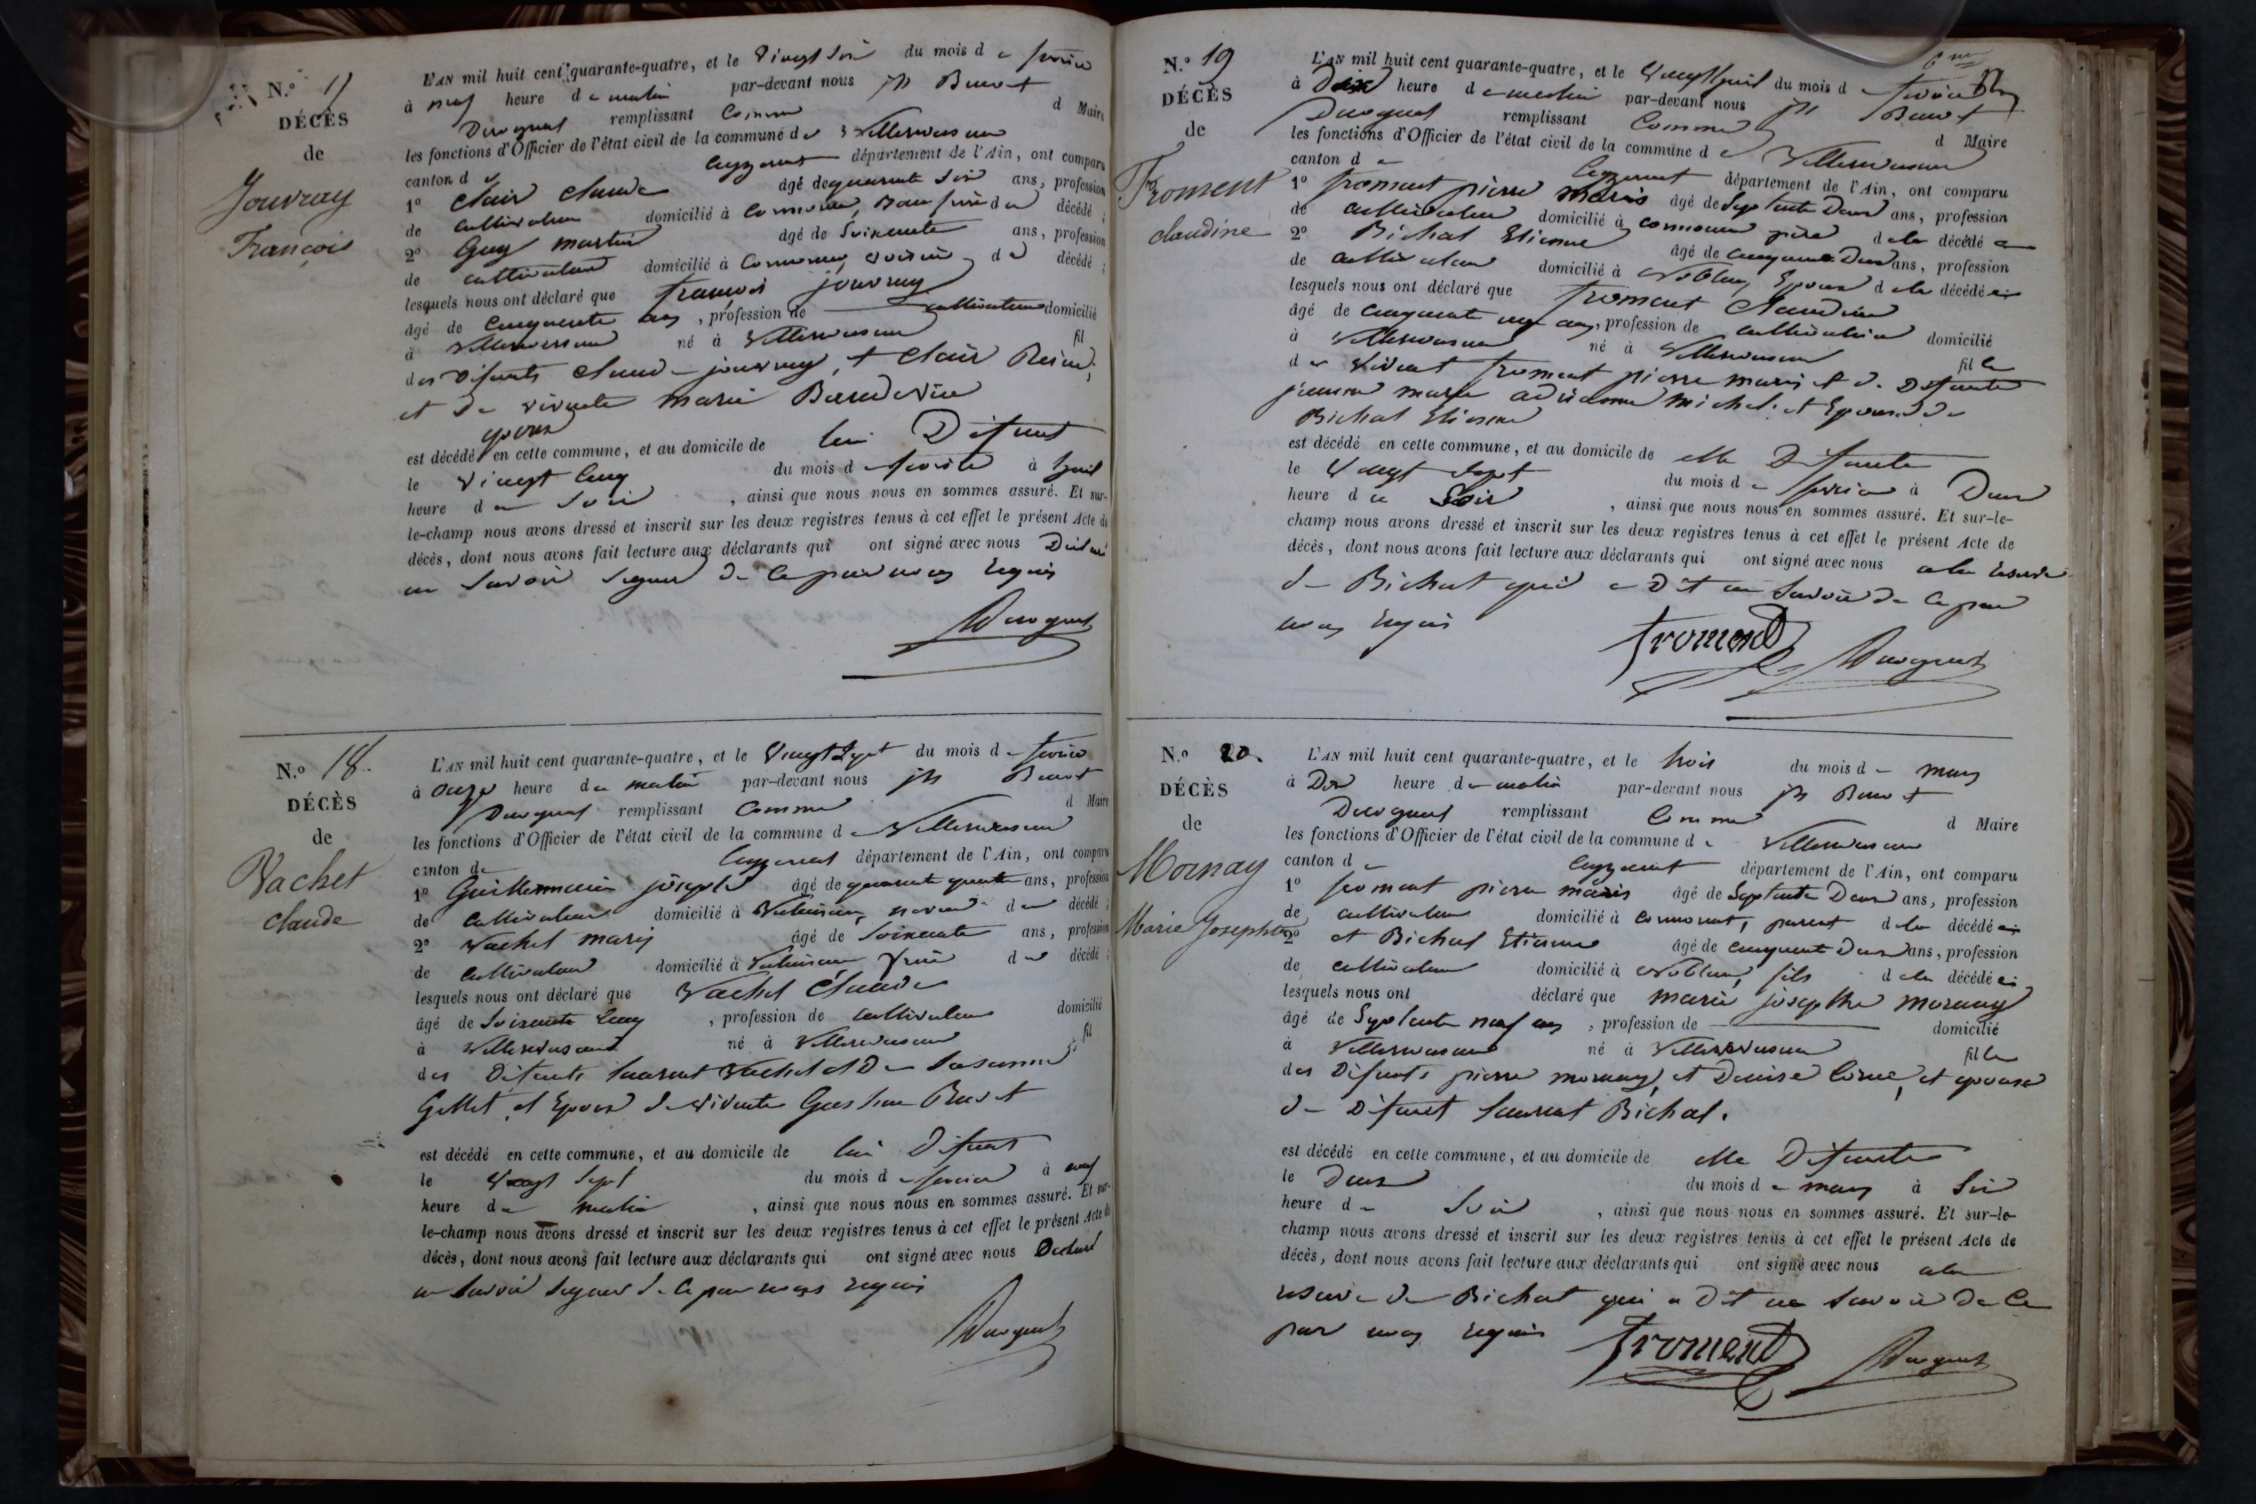 N.º 17
DÉCÈS
de
Jouvray
François
L'AN mil huit cent quarante-quatre, et le vingt six du mois de fevrier
à neuf heure du matin par-devant nous jh Benoit
Ducquet remplissant comme d Maire
les fonctions d'Officier de l'état civil de la commune de Villereversure
canton de Ceyzeriat département de l'Ain, ont comparu
1º Clair Claude âgé de quarante six ans, profession
de cultivateur domicilié à commune, Beau frère du décédé ;
2º Guy martin âgé de soixante ans, profession
de cultivateur domicilié à commune, voisin du décédé ;
lesquels nous ont déclaré que françois jouvray
âgé de cinquante ans, profession de cultivateur domicilié
à Villereversure né à Villereversure fil
des Défunts Claude jouvray, et Clair Reine,
et de vivante marie
époux
est décédé en cette commune, et au domicile de lui Défunt
le vingt cinq du mois de fevrier à huit
heure du soir, ainsi que nous nous en sommes assuré. Et sur-
le-champ nous avons dressé et inscrit sur les deux registres tenus à cet effet le présent Acte de
décès, dont nous avons fait lecture aux déclarants qui ont signé avec nous Déclaré
ne savoir signer de ce par nous requis
Ducquet
N.º 18.
DÉCÈS
de
Vachet
claude
L'AN mil huit cent quarante-quatre, et le vingt sept du mois de fevrier
à onze heure du matin par-devant nous jh Benoit
Ducquet remplissant comme d Maire
les fonctions d'Officier de l'état civil de la commune de Villereversure
canton de Ceyzeriat département de l'Ain, ont comparu
1º Guillermin joseph âgé de quarante quatre ans, profession
de cultivateur domicilié à neveu du décédé ;
2º Vachet maris âgé de soixante ans, profession
de cultivateur domicilié à frère du décédé ;
lesquels nous ont déclaré que Vachet Claude
âgé de soixante cinq, profession de cultivateur domicilié
à Villereversure né à Villereversure fil
des Défunts laurent Vachet et De Susanne
Gillet, et Epoux de vivante
est décédé en cette commune, et au domicile de lui Défunt
le vingt sept du mois de fevrier à neuf
heure du matin, ainsi que nous nous en sommes assuré. Et sur-
le-champ nous avons dressé et inscrit sur les deux registres tenus à cet effet le présent Acte de
décès, dont nous avons fait lecture aux déclarants qui ont signé avec nous Déclaré
ne savoir signer de ce par nous requis
Ducquet
N.º 19
DÉCÈS
de
Froment
claudine
L'AN mil huit cent quarante-quatre, et le vingt huit du mois de fevrier
à Dix heure du matin par-devant nous jh Benoit
Ducquet remplissant comme d Maire
les fonctions d'Officier de l'état civil de la commune de Villereversure
canton de Ceyzeriat département de l'Ain, ont comparu
1º froment pierre maris âgé de septante Deux ans, profession
de cultivateur domicilié à commune père de la décédée
2º Bichat Etienne âgé de cinquante Deux ans, profession
de cultivateur domicilié à Noblens, Epoux de la décédée
lesquels nous ont déclaré que froment Claudine
âgé de cinquante ans, profession de cultivatrice domicilié
à Villereversure né à Villereversure fille
de vivant froment pierre maris et de Défunte
jeanne marie michel et Epouse de
Bichat Etienne
est décédé en cette commune, et au domicile de elle Défunte
le vingt sept du mois de fevrier à Deux
heure du soir, ainsi que nous nous en sommes assuré. Et sur-le-
champ nous avons dressé et inscrit sur les deux registres tenus à cet effet le présent Acte de
décès, dont nous avons fait lecture aux déclarants qui ont signé avec nous a la reserve
de Bichat qui a Dit ne savoir de ce par
nous requis
froment Ducquet
N.º 20.
DÉCÈS
de
Mornay
Marie Josephte
L'AN mil huit cent quarante-quatre, et le trois du mois de mars
à Dix heure du matin par-devant nous jh Benoit
Ducquet remplissant comme d Maire
les fonctions d'Officier de l'état civil de la commune de Villereversure
canton de Ceyzeriat département de l'Ain, ont comparu
1º froment pierre maris âgé de septante Deux ans, profession
de cultivateur domicilié à parent de la décédée
2º et Bichat Etienne âgé de cinquante Deux ans, profession
de cultivateur domicilié à Noblens, fils de la décédée
lesquels nous ont déclaré que marie josephte mornay
âgé de septante neuf ans, profession de domicilié
à Villereversure né à Villereversure fille
des Défunts pierre mornay, et Denise et epouse
de Défunt laurent Bichat.
est décédé en cette commune, et au domicile de elle Défunte
le Deux du mois de mars à six
heure du soir, ainsi que nous nous en sommes assuré. Et sur-le-
champ nous avons dressé et inscrit sur les deux registres tenus à cet effet le présent Acte de
décès, dont nous avons fait lecture aux déclarants qui ont signé avec nous a la
reserve de Bichat qui a Dit ne savoir de ce
par nous requis froment Ducquet